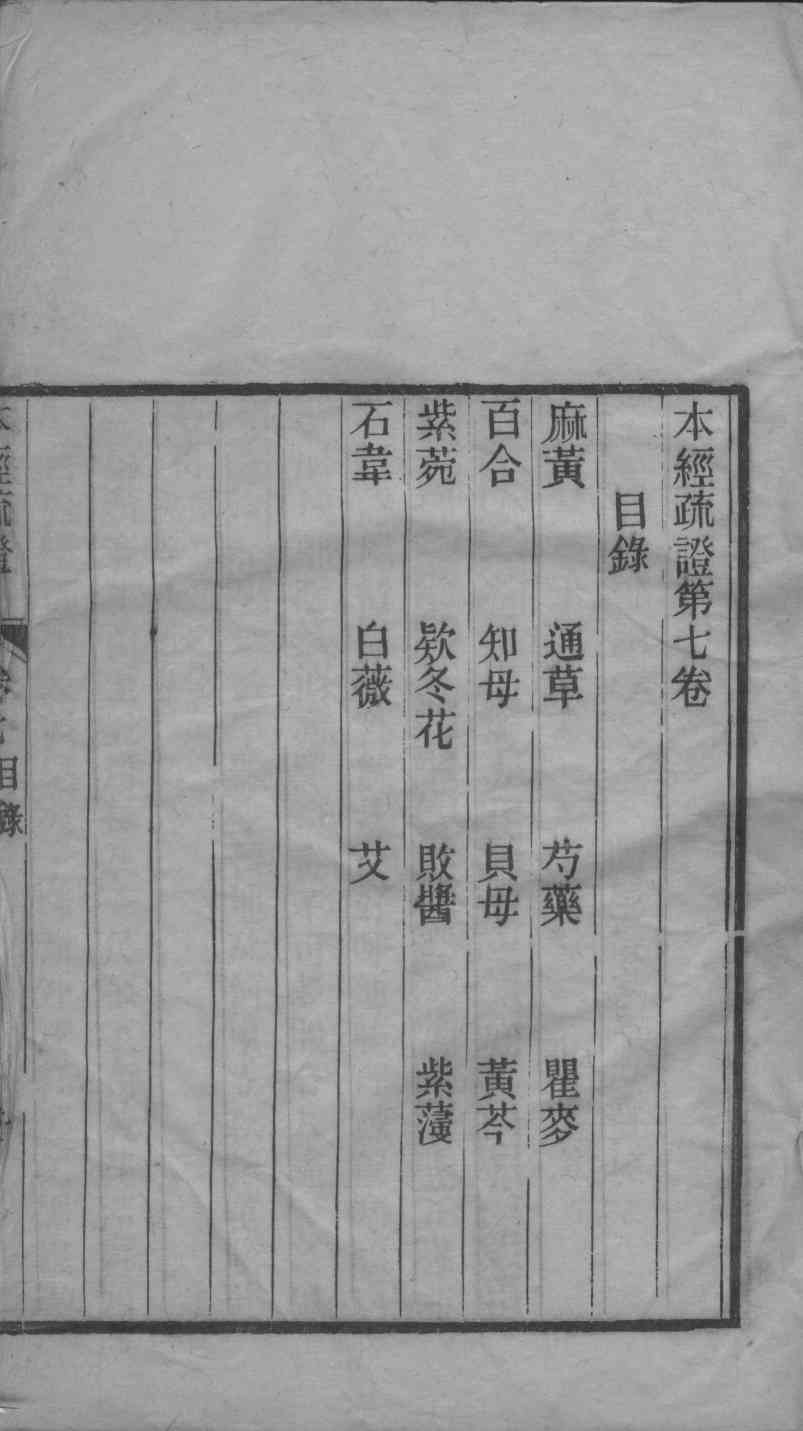 本經疏證第七卷
目錄
麻黃　通草　芍藥　瞿麥
百合　知母　貝母　黃芩
紫菀　欵冬花　敗醬　紫薓
石韋　白薇　艾
本經疏證　目錄